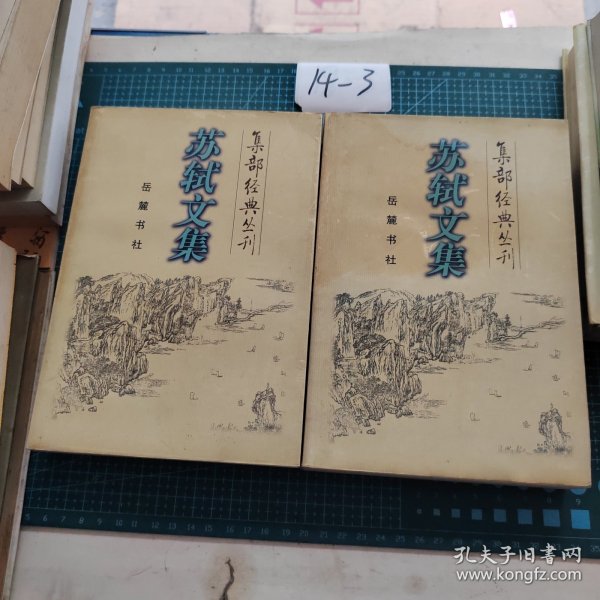 14-3
集部经典丛刊
苏轼文集
岳麓书社
集部经典丛刊
苏轼文集
岳麓书社
孔夫子旧书网
www.kongfz.com